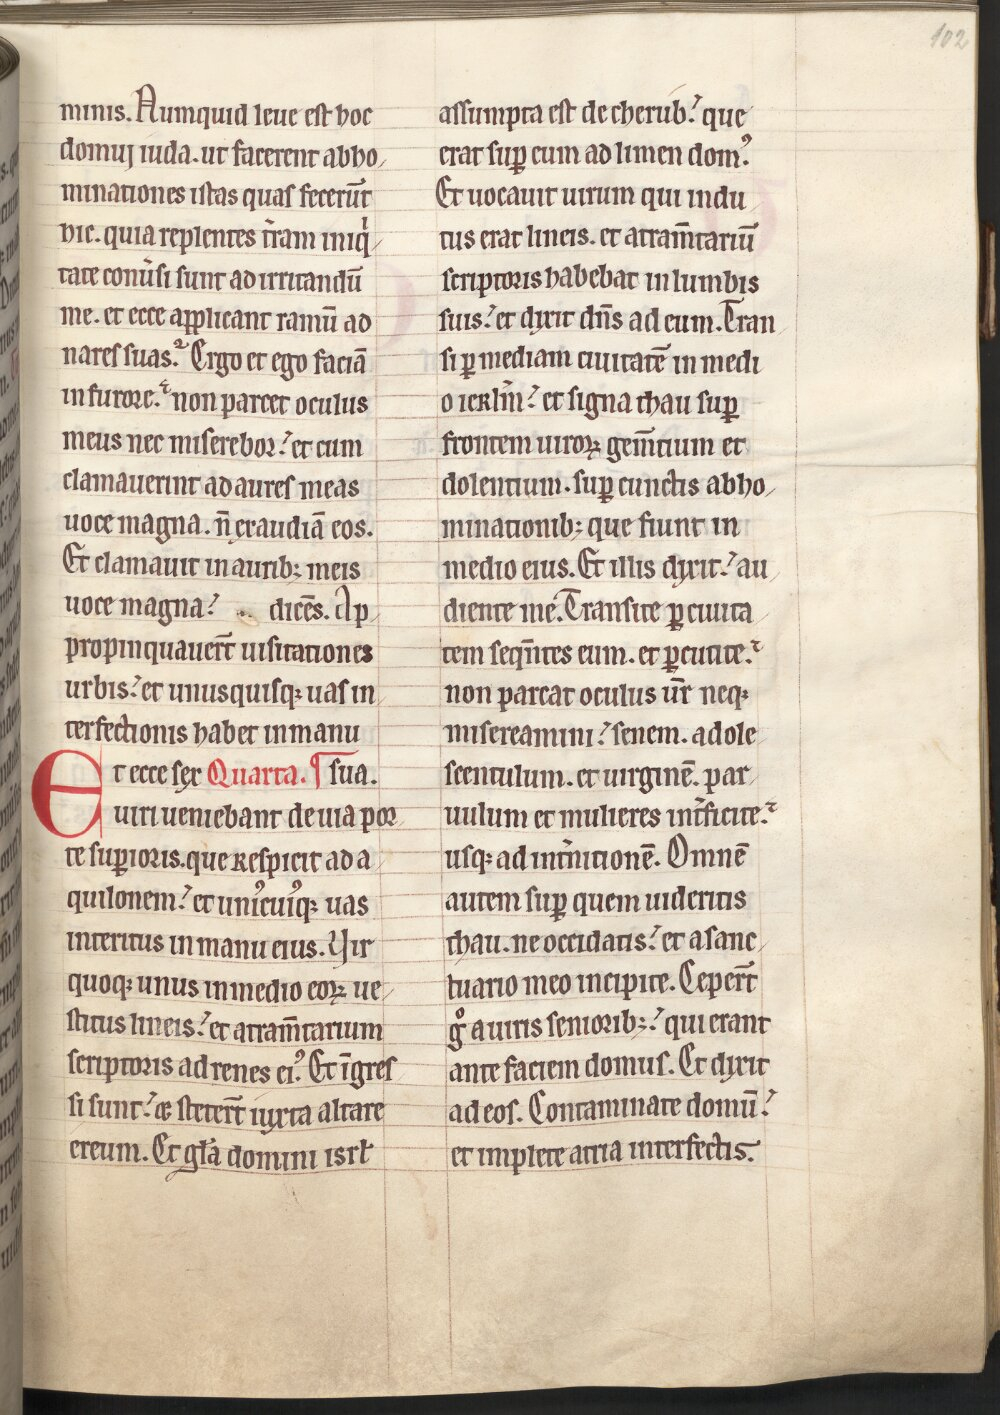 102
minis. Numquid leue est hoc
domuj iuda. ut facerent abho
minationes istas quas fecerūt
hic. quia replentes t̄ram iniqͥ
tate conūsi sunt ad irritandū
me. et ecce applicant ramū ad
nares suas. Ergo et ego faciā
in furore. non parcet oculus
meus nec miserebor. et cum
clamauerint ad aures meas
uoce magna. n̄ exaudiā eos.
Et clamauit in aurib; meis
uoce magna. dicēs. Ap
propinquauer̄t uisitationes
urbis. et unusquisqꝫ uas in
terfectionis habet in manu
Et ecce sex Quarta. ¶ sua.
uiri ueniebant de uia por
te suꝑioris. que respicit ad a
quilonem. et unꝰcuiꝰqꝫ uas
interitus in manu eius. Uir
quoqꝫ unus in medio eoꝝ ue
stitus lineis. et atram̄tarium
scriptoris ad renes eiꝰ. Et īgres
si sunt. & steter̄t iuxta altare
ereum. Et gła domini isrł
assumpta est de cherub. que
erat suꝑ eum ad limen domꝰ.
Et uocauit uirum qui indu
tus erat lineis. et atram̄tariū
scriptoris habebat in lumbis
suis. et dixit dn̄s ad eum. Tran
si ꝑ mediam ciuitatē in medi
o ierlm̄. et signa thau suꝑ
frontem uiroꝝ gem̄tium et
dolentium. suꝑ cunctis abho
minationib; que fiunt in
medio eius. Et illis dixit. au
diente me. Transite ꝑ ciuita
tem seqn̄tes eum. et ꝑcutite.
non parcat oculus ur̄ neqꝫ
misereamini. senem. adole
scentulum. et uirginē. par
uulum et mulieres int̄ficite.
usqꝫ ad int̄nitionē. Omnē
autem suꝑ quem uideritis
thau. ne occidatis. et a sanc
tuario meo incipite. Ceper̄t
gͦ a uiris seniorib;. qui erant
ante faciem domus. Et dixit
ad eos. Contaminate domū.
et implete atria interfectis.